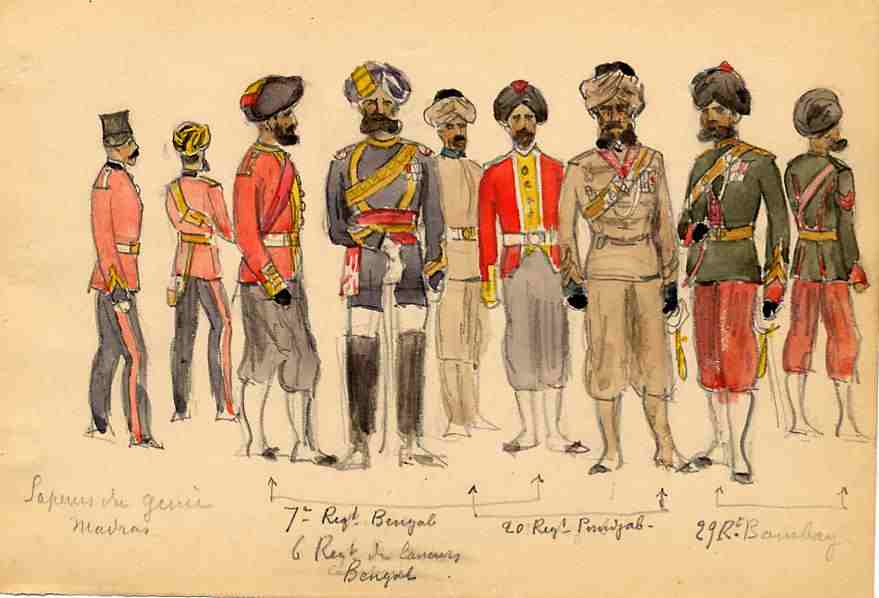 Sapeurs du génie
Madras
7e Regt Bengal
6 Regt de lanciers
Bengal
20 Regt Pundjab-
29 Rt Bombay